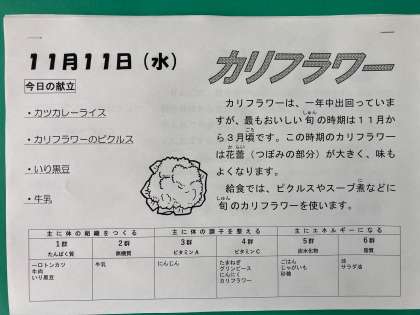 11月11日（水）
カリフラワー
今日の献立
・カツカレーライス
・カリフラワーのピクルス
・いり黒豆
・牛乳
カリフラワーは、一年中出回っていま
すが、最もおいしい旬の時期は１１月か
ら３月頃です。この時期のカリフラワー
は花蕾（つぼみの部分）が大きく、味も
よくなります。
給食では、ピクルスやスープ煮などに
旬のカリフラワーを使います。
主に体の組織をつくる
主に体の調子を整える
主にエネルギーになる
1群 2群 3群 4群 5群 6群
たんぱく質 無機質 ビタミンA ビタミンC 炭水化物 脂質
一口トンカツ 牛乳 にんじん たまねぎ ごはん 油
牛肉 グリンピース じゃがいも サラダ油
いり黒豆 にんにく 砂糖
カリフラワー